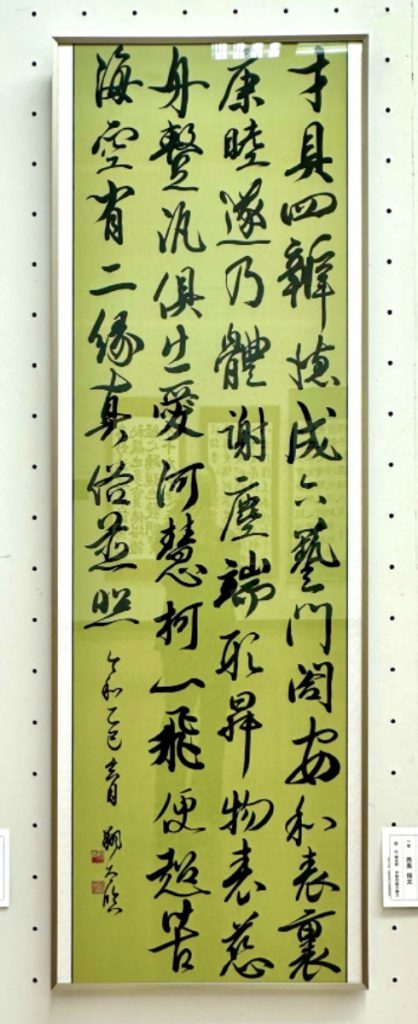 才具四辯德成六藝門閤安和表裏
康睦遂乃體謝塵端形昇物表慈
舟蹔汎俱出愛河慧柯一飛便超苦
海空有二緣真俗並照
令和乙巳春日